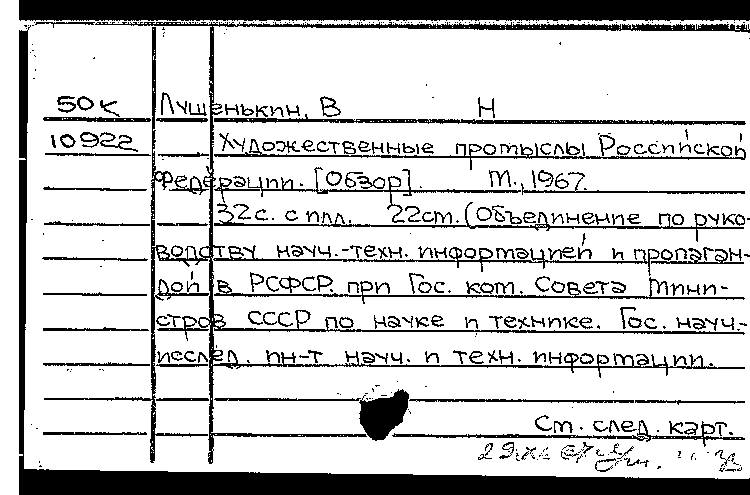 50К Лушенькин, В Н
10922 Художественные промыслы Российской
Федерации. [Обзор]. М., 1967.
32с. с илл. 22см. (Объединение по руко-
водству науч.-техн. информацией и пропаган-
дой в РСФСР. при Гос. ком. Совета Мини-
стров СССР по науке и технике. Гос. науч.-
исслед. ин-т науч. и техн. информации.
См. след. карт.